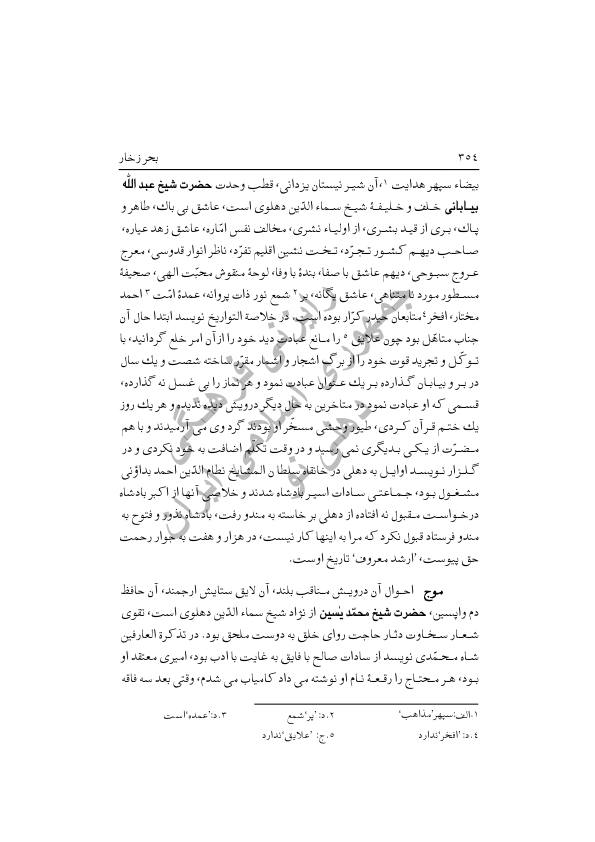 ٣٥٤ بحر زخار
بیضاء سپهر هدایت ١،آن شیر نیستان یزدانی، قطب وحدت حضرت شیخ عبد الله
بیابانی خلف و خلیفهٔ شیخ سماء الدّین دهلوی است، عاشق بی باك، طاهر و
پاك، بری از قید بشری، از اولیاء نشری، مخالف نفس امّاره، عاشق زهد عیاره،
صاحب دیهم كشور تجرّد، تخت نشین اقلیم تفرّد، ناظر انوار قدوسی، معرج
عروج سبوحی، دیهم عاشق با صفا، بندهٔ با وفا، لوحهٔ منقوش محبّت الهی، صحیفهٔ
مسطور مورد نا متناهی، عاشق یگانه، بر ٢ شمع نور ذات پروانه، عمدهٔ امّت ٣ احمد
مختار، افخر٤ متابعان حیدر كرّار بوده است. در خلاصة التواریخ نویسد ابتدا حال آن
جناب متاهّل بود چون علایق ٥ را مانع عبادت دید خود را ازآن امر خلع گردانید، با
توكّل و تجرید قوت خود را از برگ اشجار و اشمار مقرّر ساخته شصت و یك سال
در بر و بیابان گذارده بر یك عنوان عبادت نمود و هر نماز را بی غسل نه گذارده،
قسمی كه او عبادت نمود در متاخرین به حال دیگر درویش دیده ندیده و هر یك روز
یك ختم قرآن كردی، طیور وحشی مسخّر او بودند گرد وی می آرمیدند و با هم
مضرّت از یكی بدیگری نمی رسید و در وقت تكلّم اضافت به خود نكردی و در
گلزار نویسد اوایل به دهلی در خانقاه سلطان المشایخ نظام الدّین احمد بداؤنی
مشغول بود، جماعتی سادات اسیر بادشاه شدند و خلاصی آنها از اكبر بادشاه
درخواست مقبول نه افتاده از دهلی بر خاسته به مندو رفت، بادشاه نذور و فتوح به
مندو فرستاد قبول نكرد كه مرا به اینها كار نیست، در هزار و هفت به جوار رحمت
حق پیوست، ’ارشد معروف‘ تاریخ اوست.
موج احوال آن درویش مناقب بلند، آن لایق ستایش ارجمند، آن حافظ
دم واپسین، حضرت شیخ محمّد یٰسین از نژاد شیخ سماء الدّین دهلوی است، تقوی
شعار سخاوت دثار حاجت روای خلق به دوست ملحق بود. در تذكرة العارفین
شاه محمّدی نویسد از سادات صالح با فایق به غایت با ادب بود، امیری معتقد او
بود، هر محتاج را رقعهٔ نام او نوشته می داد كامیاب می شدم، وقتی بعد سه فاقه
١-الف:سپهر’مذاهب‘ ٢.د:’پر‘شمع ٣.د:’عمده‘است
٤.د: ’افخر‘ندارد ٥.ج: ’علایق‘ندارد